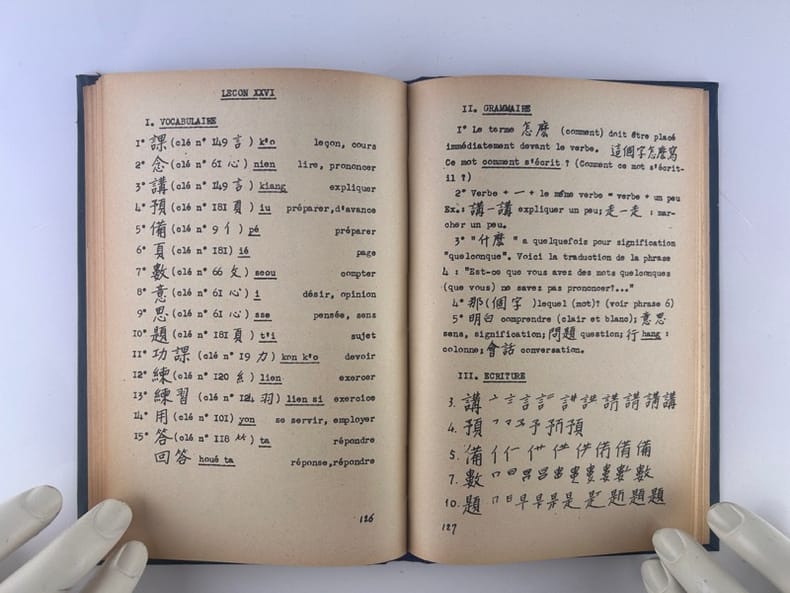 LECON XXVI
I. VOCABULAIRE
1° 課 (clé n° 149 言) k'o leçon, cours
2° 念 (clé n° 61 心) nien lire, prononcer
3° 講 (clé n° 149 言) kiang expliquer
4° 預 (clé n° 181 頁) iu préparer,d'avance
5° 備 (clé n° 9 亻) pé préparer
6° 頁 (clé n° 181) ié page
7° 數 (clé n° 66 攵) seou compter
8° 意 (clé n° 61 心) i désir, opinion
9° 思 (clé n° 61 心) sse pensée, sens
10° 題 (clé n° 181 頁) t'i sujet
11° 功課 (clé n° 19 力) kon k'o devoir
12° 練 (clé n° 120 糹) lien exercer
13° 練習 (clé n° 124 羽) lien si exercice
14° 用 (clé n° 101) yon se servir, employer
15° 答 (clé n° 118 ⺮) ta répondre
回答 houé ta réponse,répondre
126
II. GRAMMAIRE
1° Le terme 怎麽 (comment) doit être placé
immédiatement devant le verbe. 這個字怎麽寫
Ce mot comment s'écrit ? (Comment ce mot s'écrit-
il ?)
2° Verbe + 一 + le même verbe = verbe + un peu
Ex.: 講一講 expliquer un peu; 走一走 : mar-
cher un peu.
3° "什麽" a quelquefois pour signification
"quelconque". Voici la traduction de la phrase
4 : "Est-ce que vous avez des mots quelconques
(que vous) ne savez pas prononcer?..."
4° 那(個字) lequel (mot)? (voir phrase 6)
5° 明白 comprendre (clair et blanc); 意思
sens, signification; 問題 question; 行 hang :
colonne; 會話 conversation.
III. ECRITURE
3. 講
4. 預
5. 備
7. 數
10. 題
127